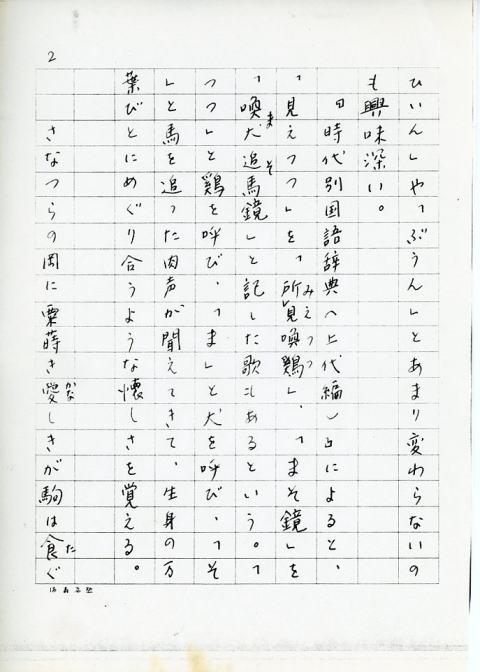 2
ひいん」や「ぶうん」とあまり変わらないの
も興味深い。
『時代別国語辞典〈上代編〉』によると、
「見えつつ」を「所見喚鶏」、「まそ鏡」を
みえつつ
「喚犬追馬鏡」と記した歌もあるという。「
まそ
つつ」と鶏を呼び、「ま」と犬を呼び、「そ
」と馬を追った肉声が聞えてきて、生身の万
葉びとにめぐり合うような懐しさを覚える。
さなつらの岡に粟蒔き愛しきが駒は食ぐ
かな
た